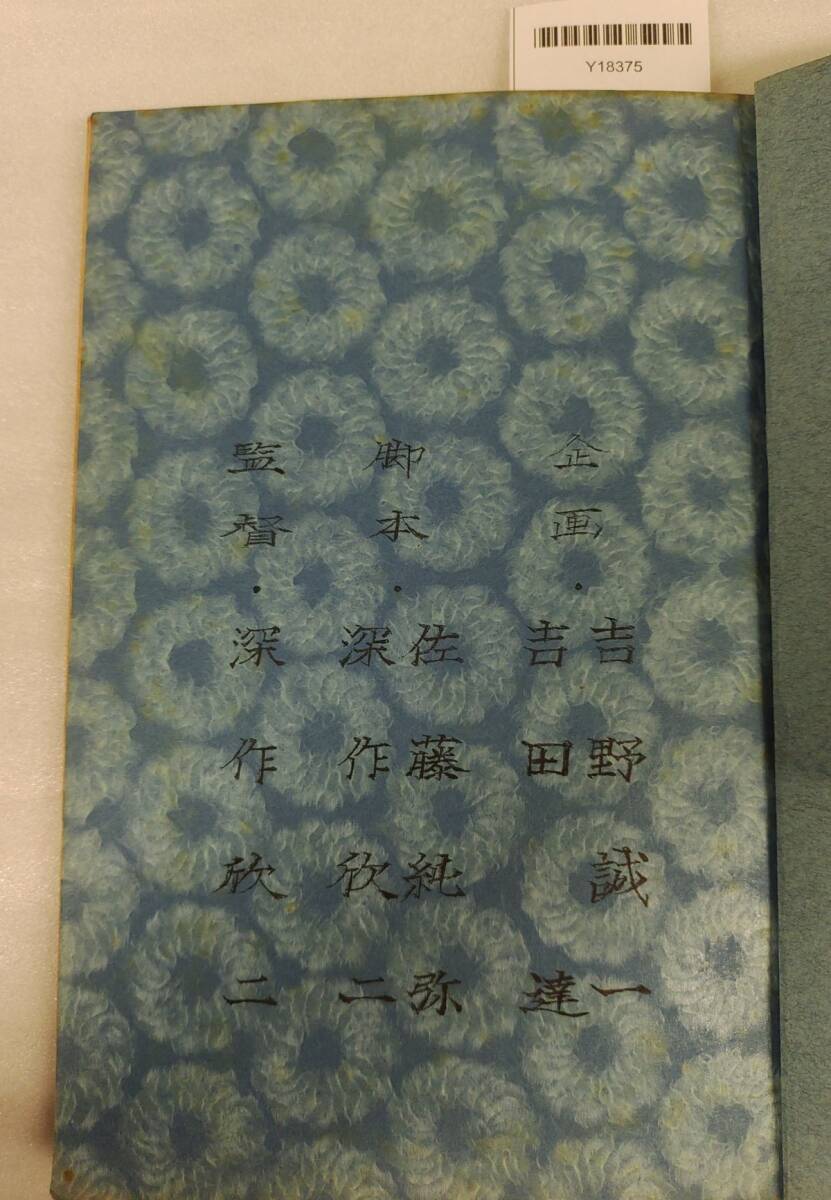 Y18375
企画・吉野誠一
吉田達
脚本・佐藤純弥
深作欣二
監督・深作欣二